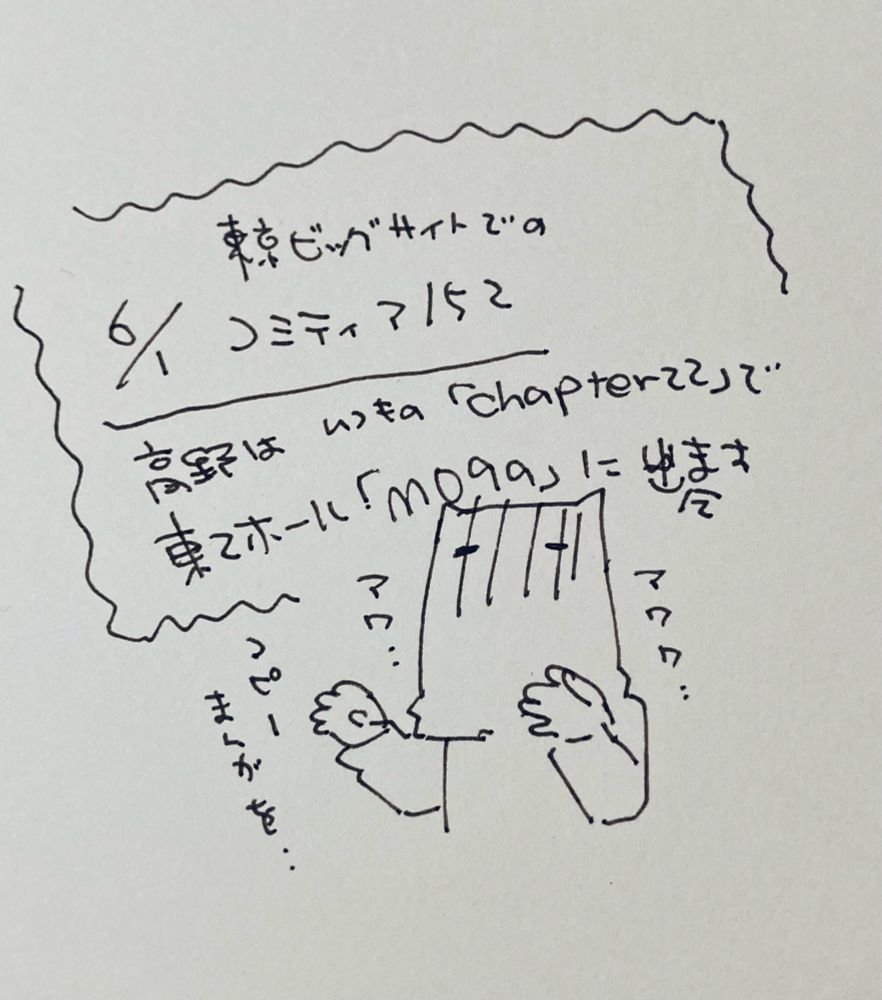 東京ビッグサイトでの
6/1 コミティア152
高野は いつもの「chapter22」で
東2ホール「M09a」に出ます
アワ…
アワワ…
コピー
まんがを…